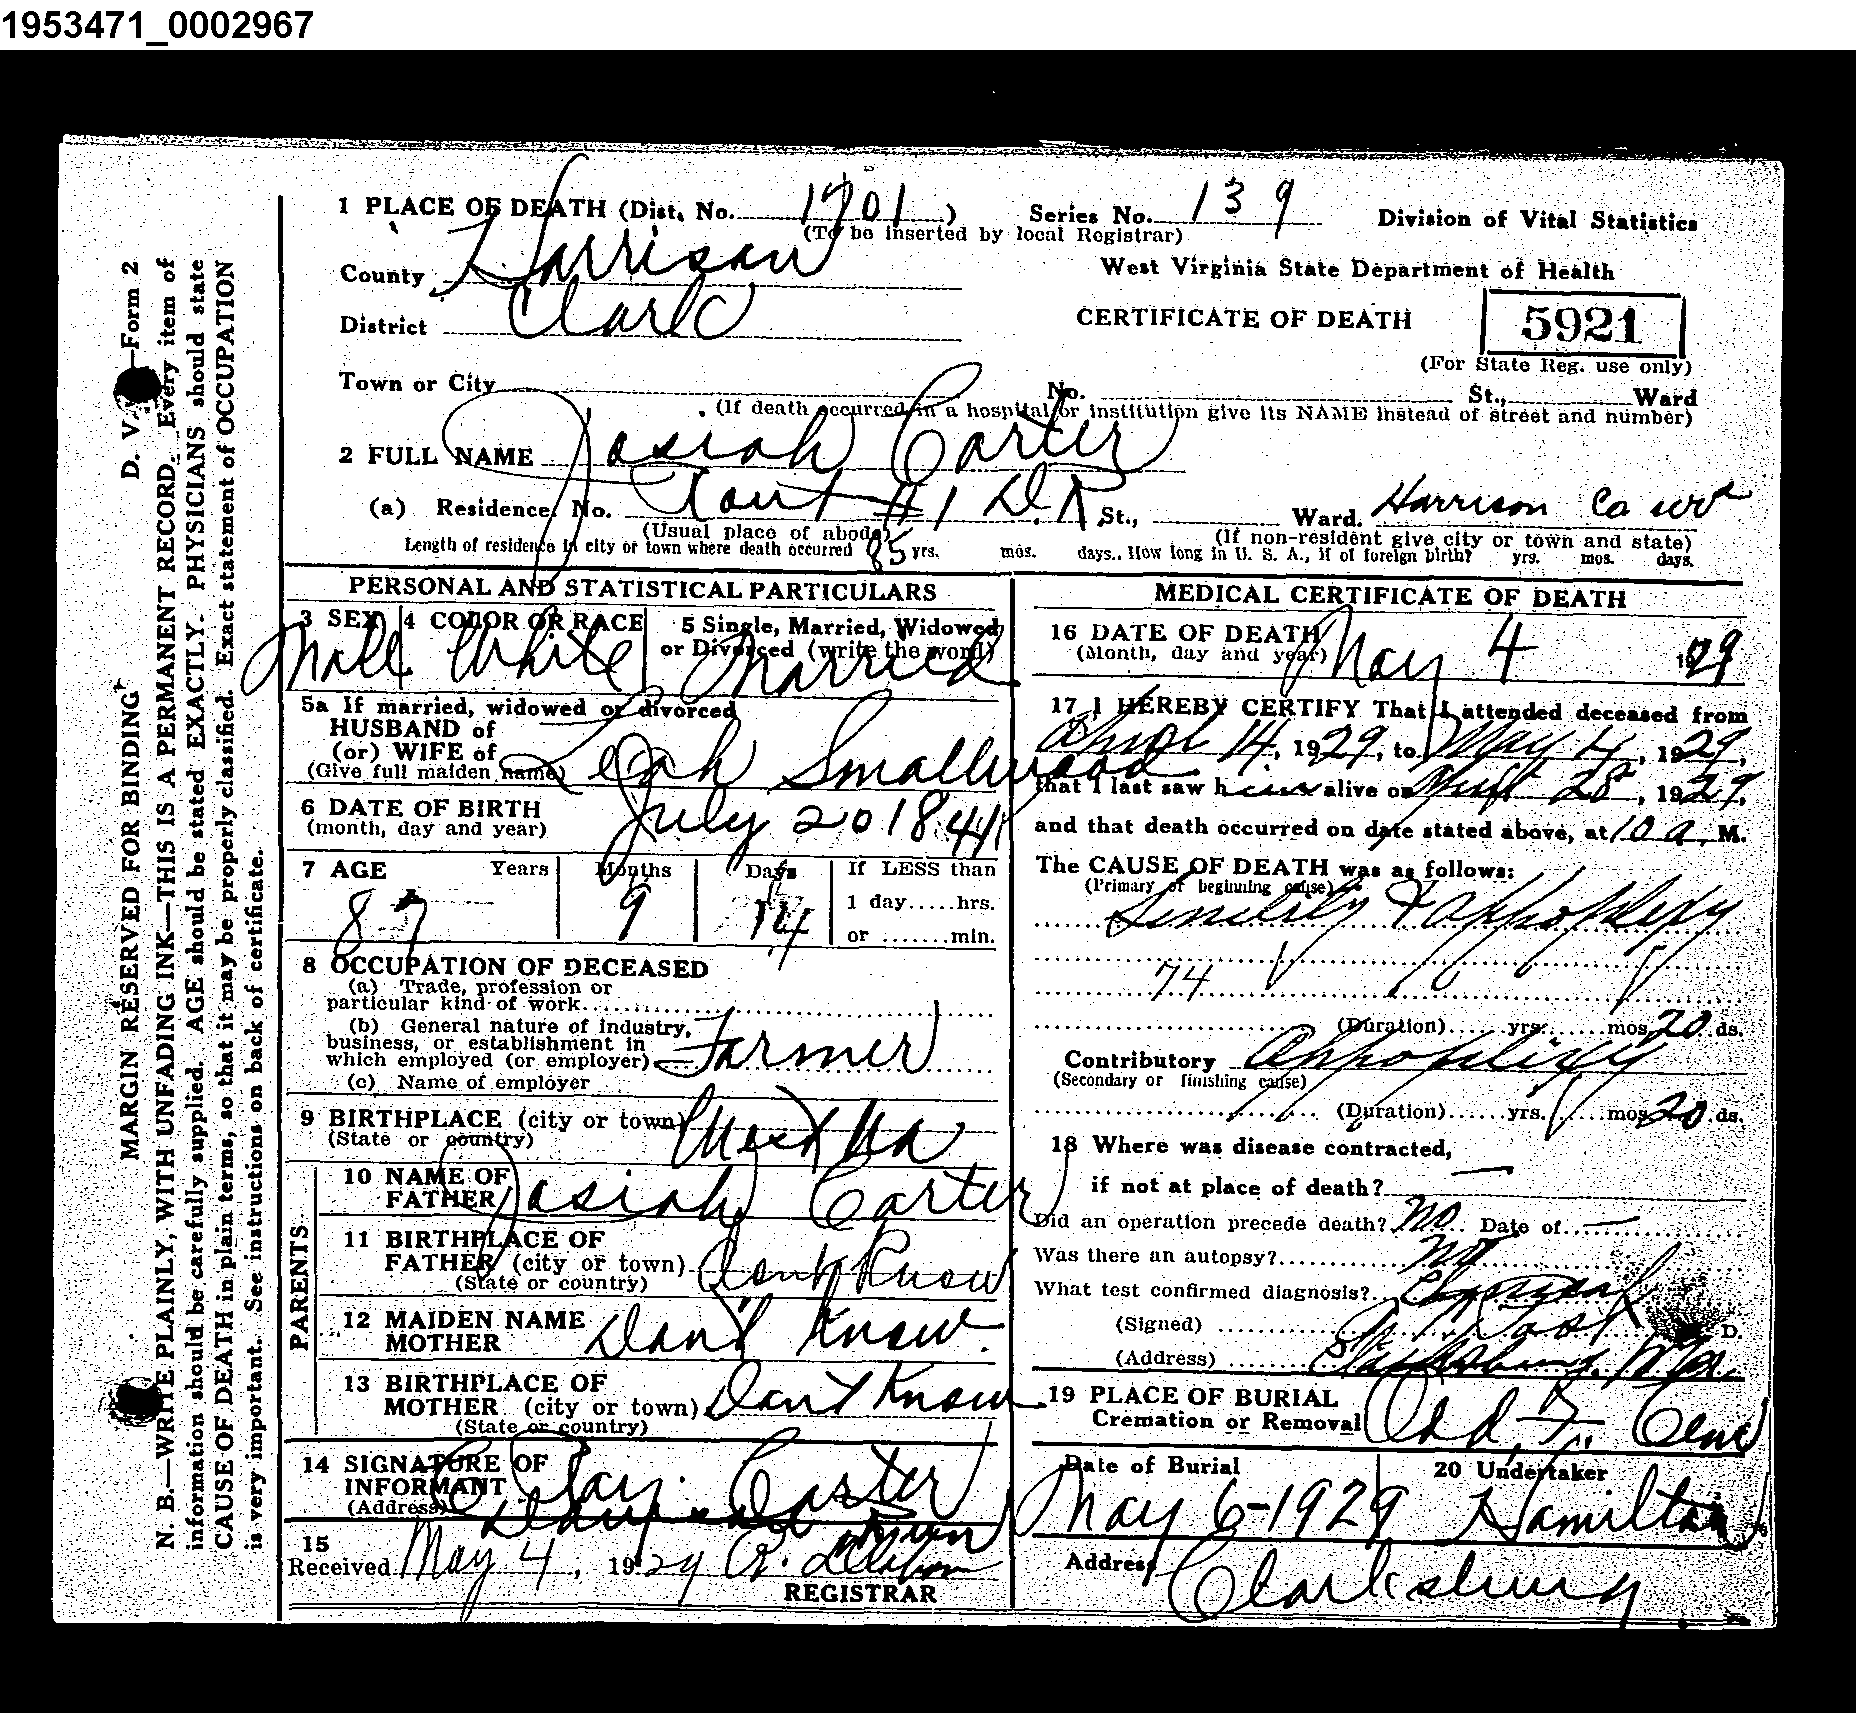 1953471_0002967
1 PLACE OF DEATH (Dist. No. 1701 )
(To be inserted by local Registrar)
Series No. 139
Division of Vital Statistics
County Harrison
West Virginia State Department of Health
District Clark
CERTIFICATE OF DEATH
5921
(For State Reg. use only)
Town or City No. St., Ward
(If death occurred in a hospital or institution give its NAME instead of street and number)
2 FULL NAME Josiah Carter
(a) Residence. No. Rout #1 St., Ward. Harrison Co
(Usual place of abode) (If non-resident give city or town and state)
Length of residence in city or town where death occurred 85 yrs. mos. days.. How long in U. S. A., if of foreign birth? yrs. mos. days.
PERSONAL AND STATISTICAL PARTICULARS
3 SEX Male
4 COLOR OR RACE White
5 Single, Married, Widowed or Divorced (write the word) Married
5a If married, widowed or divorced
HUSBAND of
(or) WIFE of Leah Smallwood
(Give full maiden name)
6 DATE OF BIRTH July 20 1844
(month, day and year)
7 AGE Years Months Days If LESS than
87 9 14 1 day.....hrs.
or .......min.
8 OCCUPATION OF DECEASED
(a) Trade, profession or
particular kind of work
(b) General nature of industry,
business, or establishment in
which employed (or employer) Farmer
(c) Name of employer
9 BIRTHPLACE (city or town) West Va
(State or country)
PARENTS
10 NAME OF
FATHER Josiah Carter
11 BIRTHPLACE OF
FATHER (city or town) Dont Know
(State or country)
12 MAIDEN NAME
MOTHER Dont Know.
13 BIRTHPLACE OF
MOTHER (city or town) Dont Know
(State or country)
14 SIGNATURE OF
INFORMANT Clay Carter
(Address)
15
Received May 4, 1929
REGISTRAR
MEDICAL CERTIFICATE OF DEATH
16 DATE OF DEATH May 4 1929
(Month, day and year)
17 I HEREBY CERTIFY That I attended deceased from
April 14, 1929, to May 4, 1929,
that I last saw him alive on April 28, 1929,
and that death occurred on date stated above, at 10 a. M.
The CAUSE OF DEATH was as follows:
(Primary or beginning cause)
Sinility & Appoplexy
74
(Duration) yrs. mos. 20 ds.
Contributory Appoplixy
(Secondary or finishing cause)
(Duration) yrs. mos. 20 ds.
18 Where was disease contracted,
if not at place of death? —
Did an operation precede death? No. Date of —
Was there an autopsy? No
What test confirmed diagnosis?
(Signed) Post D.
(Address) Clarksburg, W Va.
19 PLACE OF BURIAL
Cremation or Removal Odd F. Cem
Date of Burial
May 6-1929
20 Undertaker
Hamilton
Address Clarksburg
MARGIN RESERVED FOR BINDING D. V. —Form 2
N. B.—WRITE PLAINLY, WITH UNFADING INK—THIS IS A PERMANENT RECORD. Every item of
information should be carefully supplied. AGE should be stated EXACTLY. PHYSICIANS should state
CAUSE OF DEATH in plain terms, so that it may be properly classified. Exact statement of OCCUPATION
is very important. See instructions on back of certificate.